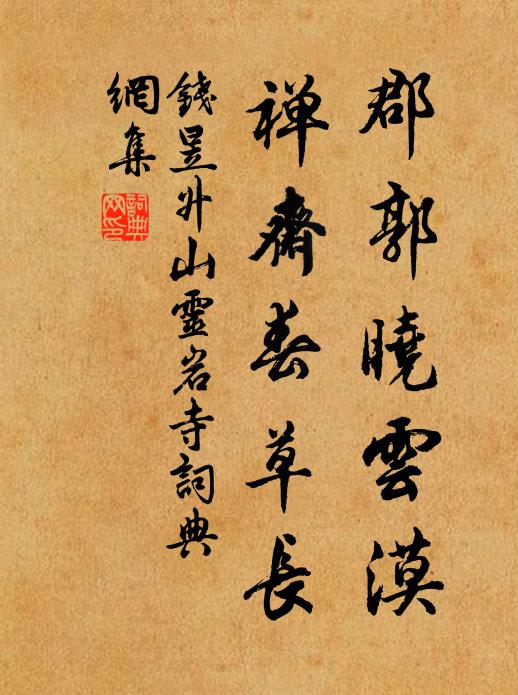 郡郭曉雲漠
禅齋春草長
錢昱外山靈岩寺詞典
網集
詞典
网印